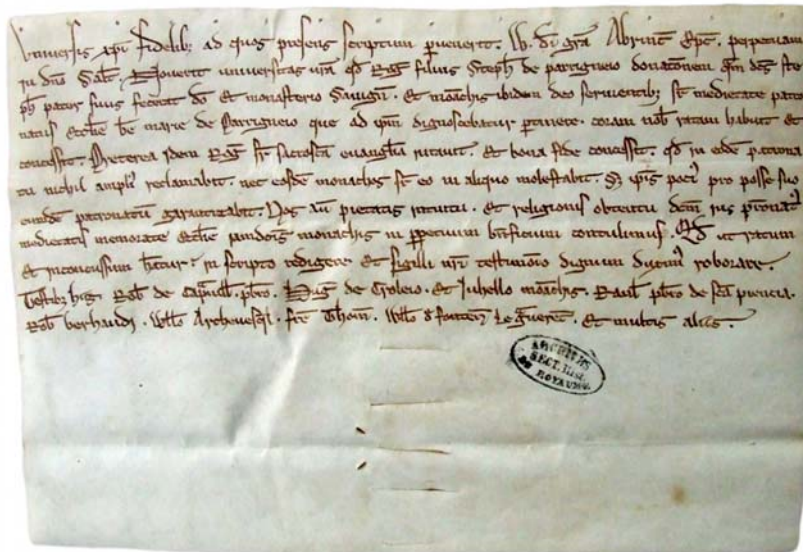 Universis xpi fidelib; ad quos presens scriptum pervenerit. W. di gra Abrinc Epc. perpetuam
in dno Salt. Noverit universitas vra qd Rog filius Steph de partigneio donationem qm dcs ste
ph pater suus fecerat do Et monasterio Savign. Et monachis ibidem deo servientib; sr medietate patro
natus Ecclie be marie de Partigneio que ad ipm dignoscebatur ptinere. coram nob ratam habuit Et
concessit. Preterea idem Rog sr sacrosca evanglia iuravit. Et bona fide concessit. qd in eode patrona
tu nichil ampli reclamabit. nec eosde monachos sr eo in aliquo molestabit. S; ipis poti pro posse suo
eunde patronatum garantizabit. Nos au pietatis intuitu. Et religionis obtentu dcm ius pronat
medietatis memorate Ecclie pandictis monachis in ppetuum bnficium contulimus. Qd ut ratum
Et inconcussum heatur. in scripto redigere Et sigilli nri testimonio dignum duxim roborare.
Testib; his Rob de Capuell. pbro. Hug de Croleio. Et Juhello monachis. Raul pbro de sca piencia.
Rob berhaudi. Willo Archevesqi. fre Thom. Willo d fonten. Le gueren. Et multis aliis.
ARCHIVES
SECT. HIST.
DU ROYAUME